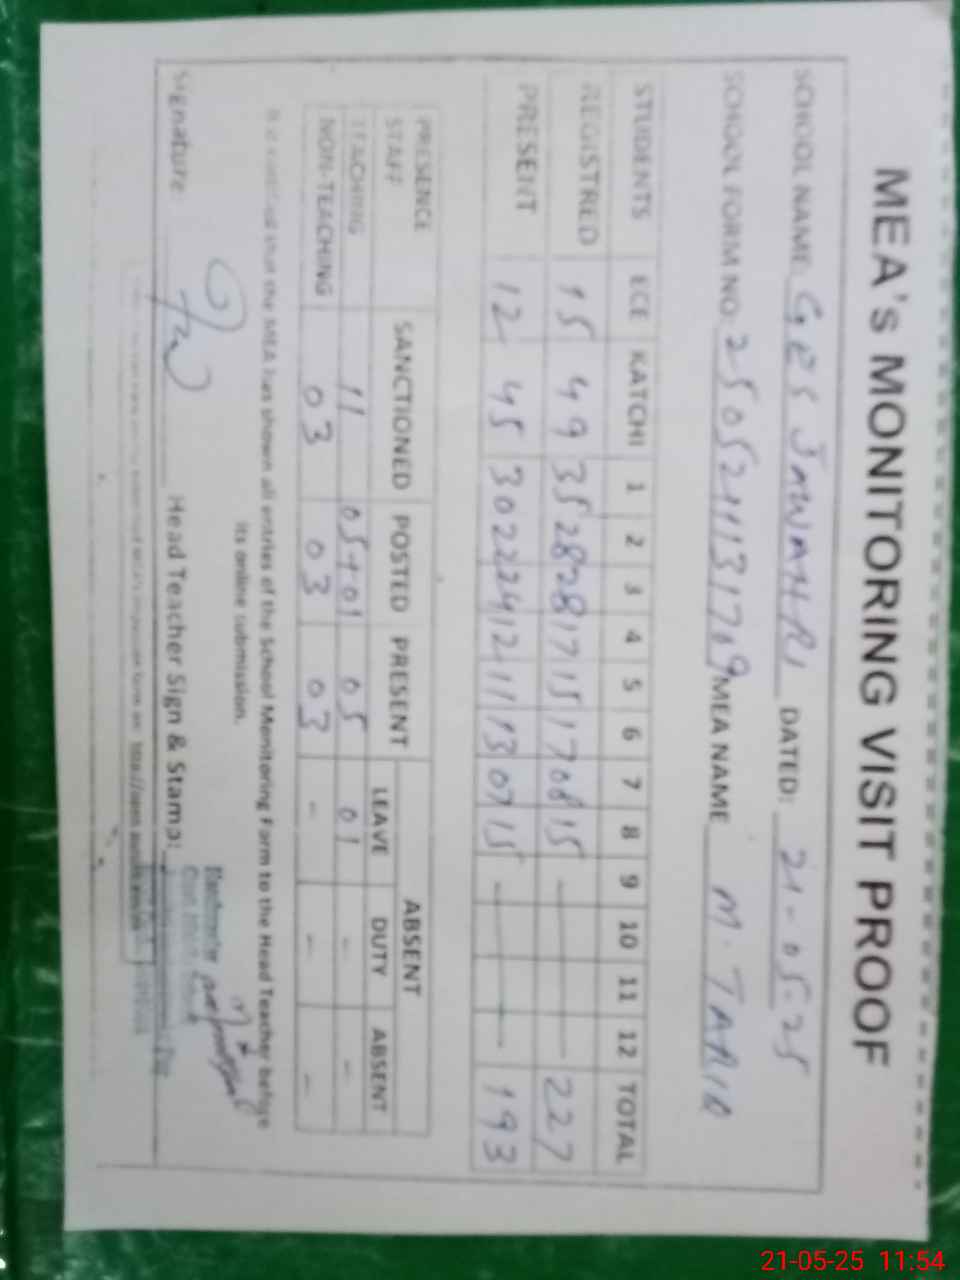 MEA's MONITORING VISIT PROOF
SCHOOL NAME: GES JAWAHRI DATED: 21-05-25
SCHOOL FORM NO: 250521131709 MEA NAME M. TARIQ
STUDENTS ECE KATCHI 1 2 3 4 5 6 7 8 9 10 11 12 TOTAL
REGISTRED 15 49 35 28 28 17 15 17 08 15 — 227
PRESENT 12 45 30 22 24 12 11 13 07 15 — 193
PRESENCE STAFF SANCTIONED POSTED PRESENT ABSENT
LEAVE DUTY ABSENT
TEACHING 11 05+01 05 01 - -
NON-TEACHING 03 03 03 - - -
It is certified that the MEA has shown all entries of the School Monitoring Form to the Head Teacher before
its online submission.
Signature: Head Teacher Sign & Stamp:
21-05-25 11:54